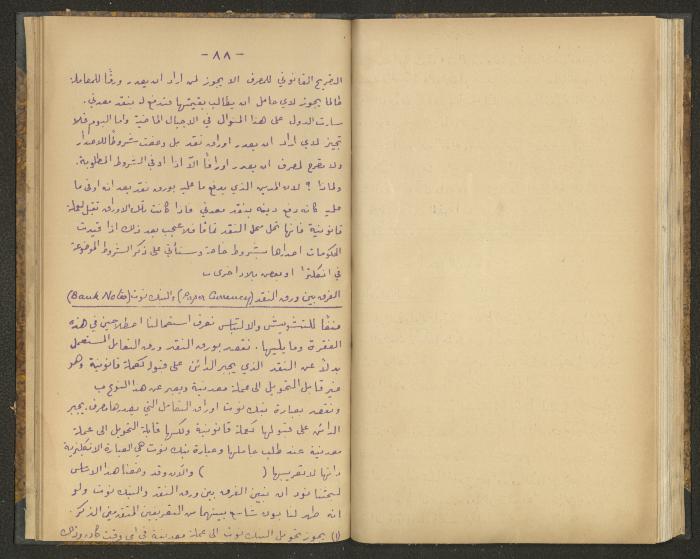 - ٨٨ -
التصريح القانوني للصرف الا يجوز لمن اراد ان يصدر ورقًا للمعاملة
طالما يجوز لاي حامل ان يطالب بقيمتها فتدفع له بنقد معدني.
سارت الدول على هذا المنوال في الاجيال الماضية واما اليوم فلا
تجيز لاي اراد ان يصدر اوراق نقد بل وضعت شروطًا للاصدار
ولا تصرح لمصرف ان يصدر اوراقًا الّا اذا اوفى الشروط المطلوبة.
ولماذا ؟ لان المدين الذي يدفع ما عليه بورق نقد يعد انه اوفى ما
عليه كانه دفع دينه بنقد معدني فاذا كانت تلك الاوراق تقبل كعملة
قانونية فانها تحل محل النقد تمامًا فلا عجب بعد ذلك اذا قيدت
الحكومات اصدارها بشروط خاصة وسنأتي على ذكر الشروط الموضوعة
في انكلترا او بعض بلاد اخرى
الفرق بين ورق النقد (Paper Currency) والبنك نوت (Bank Notes)
منعًا للتشويش والالتباس نعرف استعمالنا اصطلاحين في هذه
الفقرة وما يليها. نقصد بورق النقد ورق التعامل المستعمل
بدلاً عن النقد الذي يجبر الدائن على قبوله كعملة قانونية وهو
غير قابل التحويل الى عملة معدنية ويعبر عن هذا النوع ب
ونقصد بعبارة بنك نوت اوراق التعامل التي يصدرها مصرف يجبر
الدائن على قبولها كعملة قانونية ولكنها قابلة التحويل الى عملة
معدنية عند طلب حاملها وعبارة بنك نوت هي العبارة الانكليزية
ذاتها لا تعريبها ( ) والآن وقد وضعنا هذا الاساس
لبحثنا نود ان نبين الفرق بين ورق النقد والبنك نوت ولو
انه ظهر لنا بون شاسع بينهما من التعريفين المتقدمين الذكر.
(١) يجوز تحويل البنك نوت الى عملة معدنية في اي وقت كان وذلك